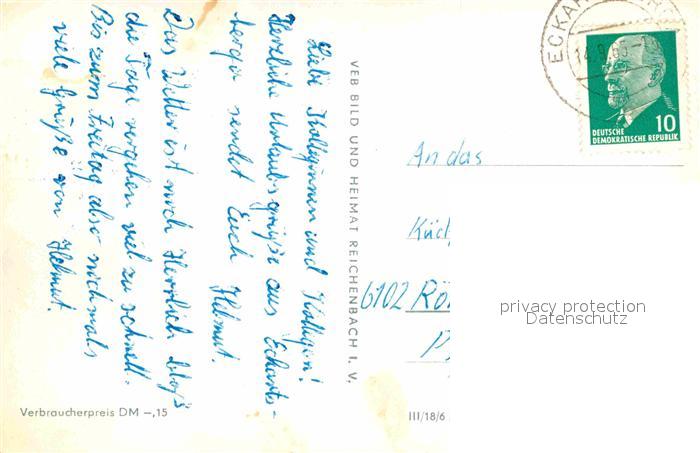 Liebe Kolleginnen und Kollegen!
Herzliche Urlaubsgrüße aus Eckarts-
berga sendet Euch Helmut.
Das Wetter ist noch Herrlich bloß
die Tage vergehen viel zu schnell.
Bis zum Freitag also nochmals
viele Grüße von Helmut.
VEB BILD UND HEIMAT REICHENBACH I. V.
ECKAR
14.9.
10
DEUTSCHE
DEMOKRATISCHE REPUBLIK
An das
Küch
6102 Röm
privacy protection
Datenschutz
Verbraucherpreis DM –,15
III/18/6